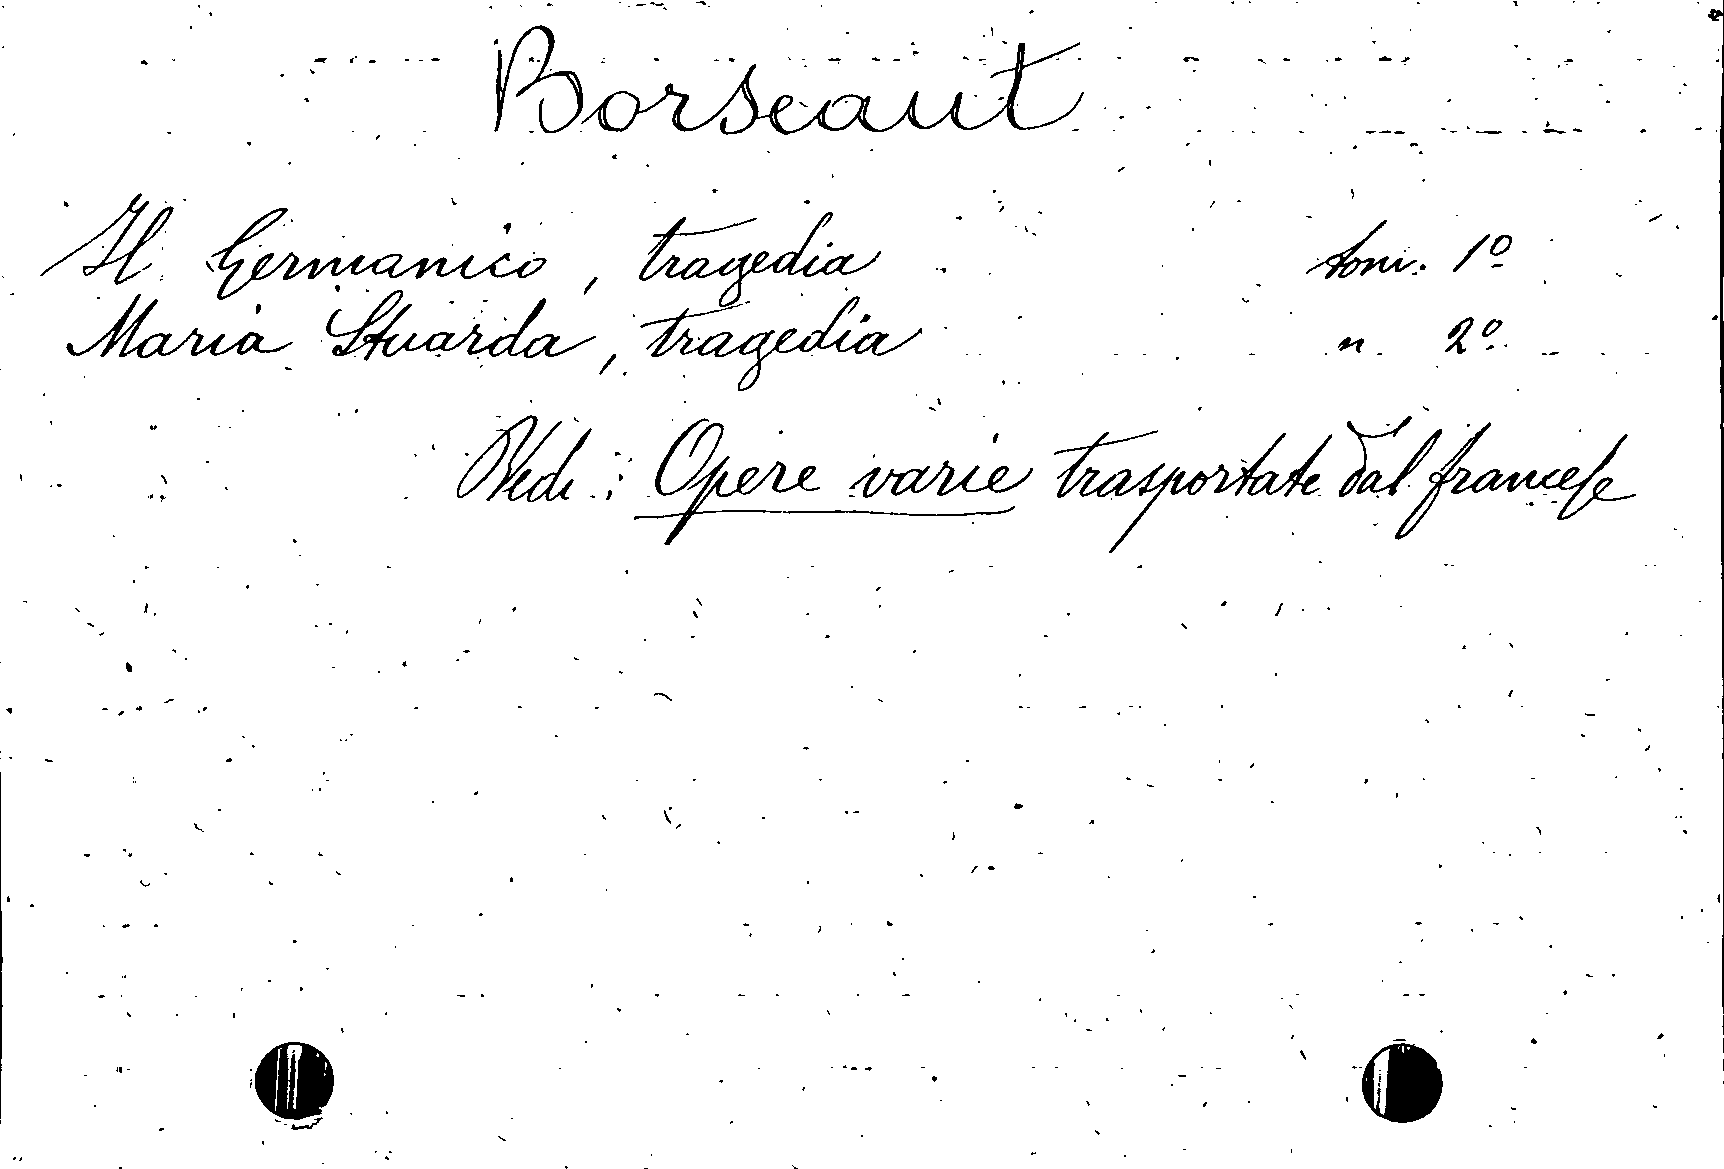 Borseaut
Il Germanico, tragedia tom. 1º
Maria Stuarda, tragedia n 2º
Vedi: Opere varie trasportate dal francese